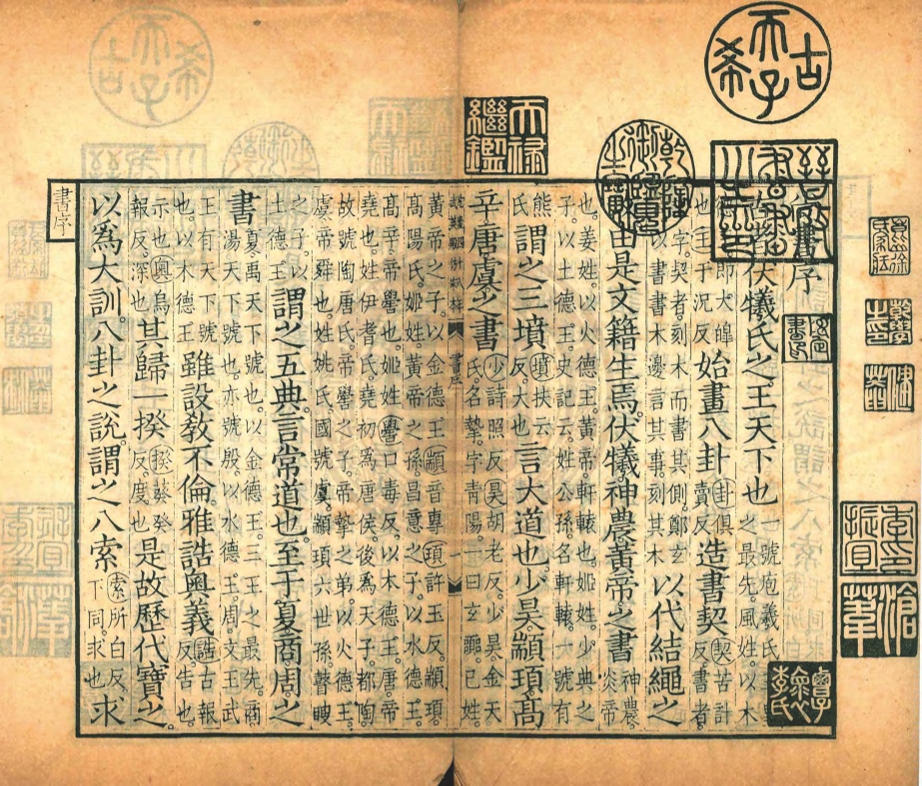 古希天子
天祿繼鑑
乾隆御覽之寶
書序
伏犧氏之王天下也 一號庖羲氏
之最先。風姓。以木
即太皥
也。王于況反
始畫八卦 卦俱
賣反
造書契 契苦計
反。書者
字。契者。刻木而書其側。鄭玄
以書書木邊。言其事。刻其木
以代結繩之
由是文籍生焉。伏犧神農黃帝之書 神農
炎帝
也。姜姓。以火德王。黃帝。軒轅也。姬姓。少典之
子。以土德王。史記云。姓公孫。名軒轅。一號有
熊
氏
謂之三墳 墳扶云
反。大也
言大道也。少昊顓頊髙
辛唐虞之書 少詩照反。昊胡老反。少昊金天
氏。名摯。字青陽。一曰玄囂。已姓
書序
一
黃帝之子。以金德王。顓音專。頊許玉反。顓頊。
髙陽氏。姬姓。黃帝之孫。昌意之子。以水德王。
髙辛。帝嚳也。姬姓。嚳口毒反。以木德王。唐。帝
堯也。姓伊耆氏。堯初為唐侯。後為天子。都陶。
故號陶唐氏。帝嚳之子。帝摯之弟。以火德王。
虞。帝舜也。姓姚氏。國號虞。顓頊六世孫。瞽瞍
之子。以
土德王
謂之五典。言常道也。至于夏商周之
書 夏。禹天下號也。以金德王。三王之最先。商。
湯天下號也。亦號殷。以水德王。周。文王武
王有天下號
也。以木德王
雖設教不倫。雅誥奧義 誥古報
反。告也。
示也。奧烏
報反。深也
其歸一揆 揆葵癸
反。度也
是故歷代寶之。
以爲大訓。八卦之說。謂之八索 索所白反。
下同。求也
求
書序
季振宜印
滄葦